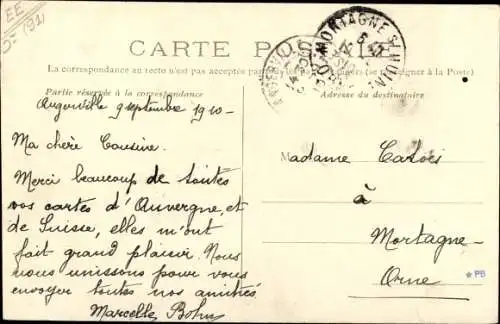 EE
(91)
CARTE POSTALE
MORTAGNE
La correspondance au recto n'est pas acceptée par (se renseigner à la Poste)
Partie réservée à la correspondance
Adresse du destinataire
Angerville 9 septembre 1910-
Ma chère Cousine.
Merci beaucoup de toutes
vos cartes d'Auvergne, et
de Suisse, elles m'ont
fait grand plaisir. Nous
nous unissons pour vous
envoyer toutes nos amitiés.
Marcelle
Madame
à
Mortagne
Orne
* PB